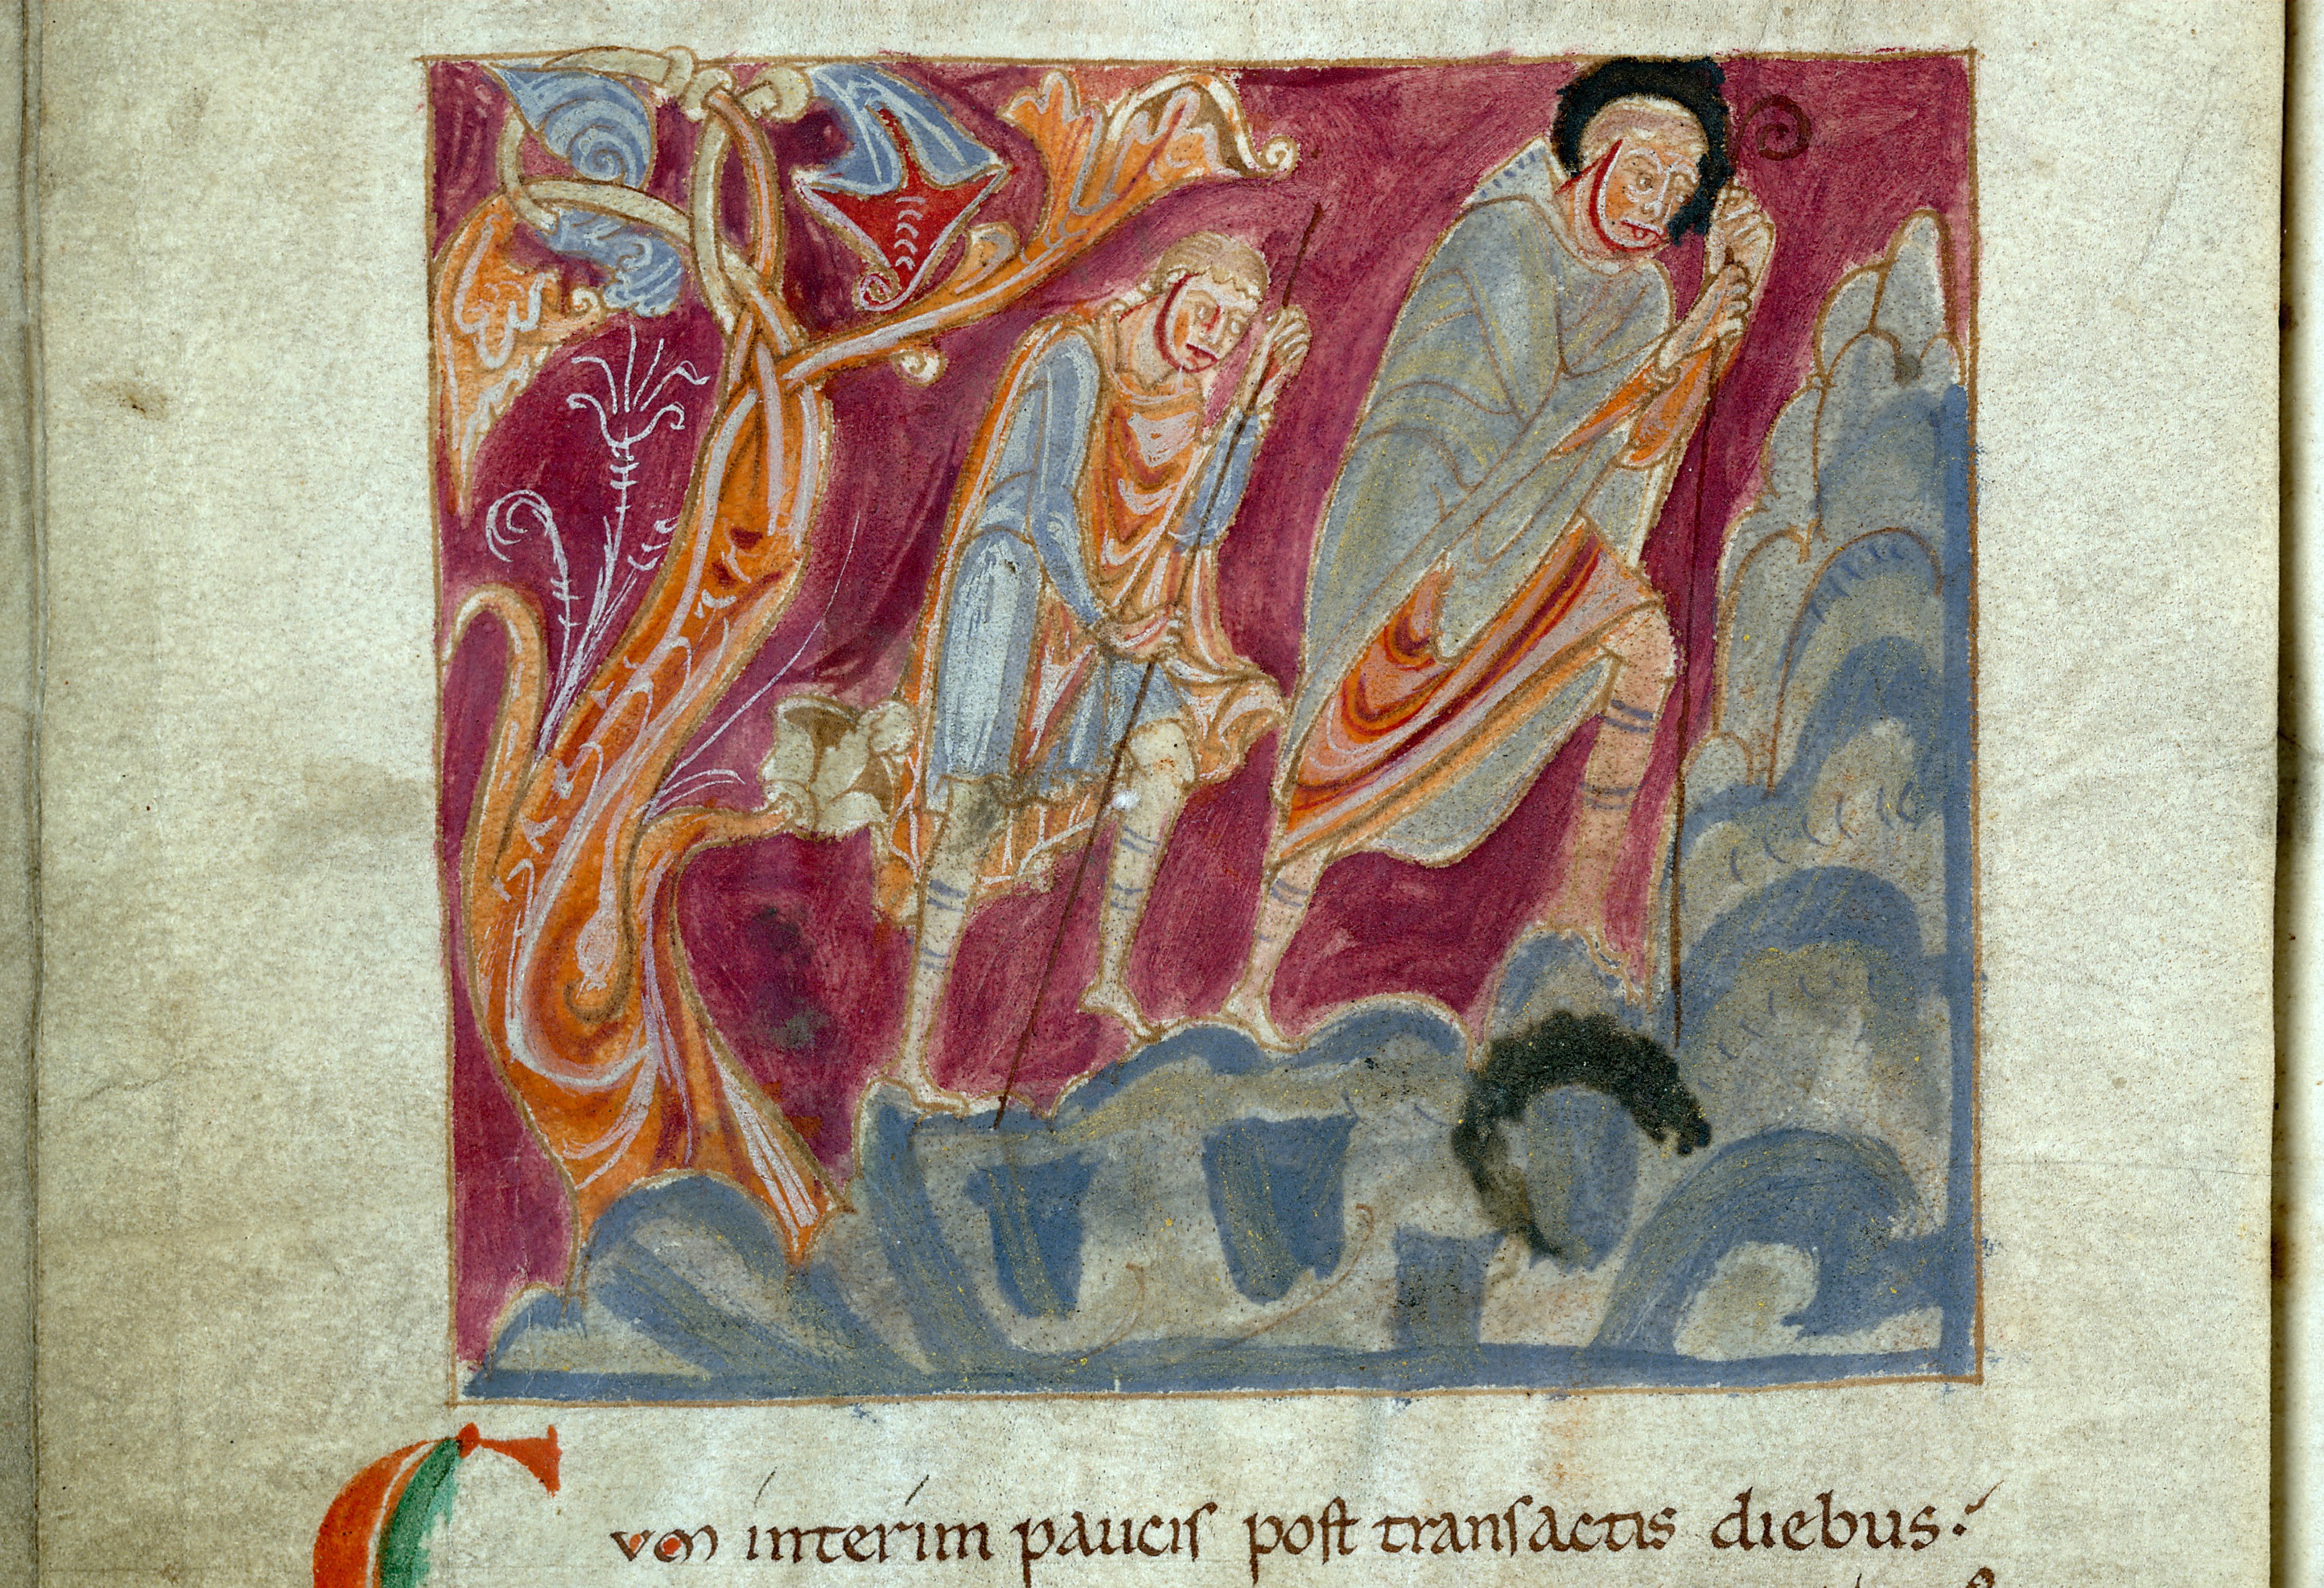 Cum interim paucis post transactis diebus.